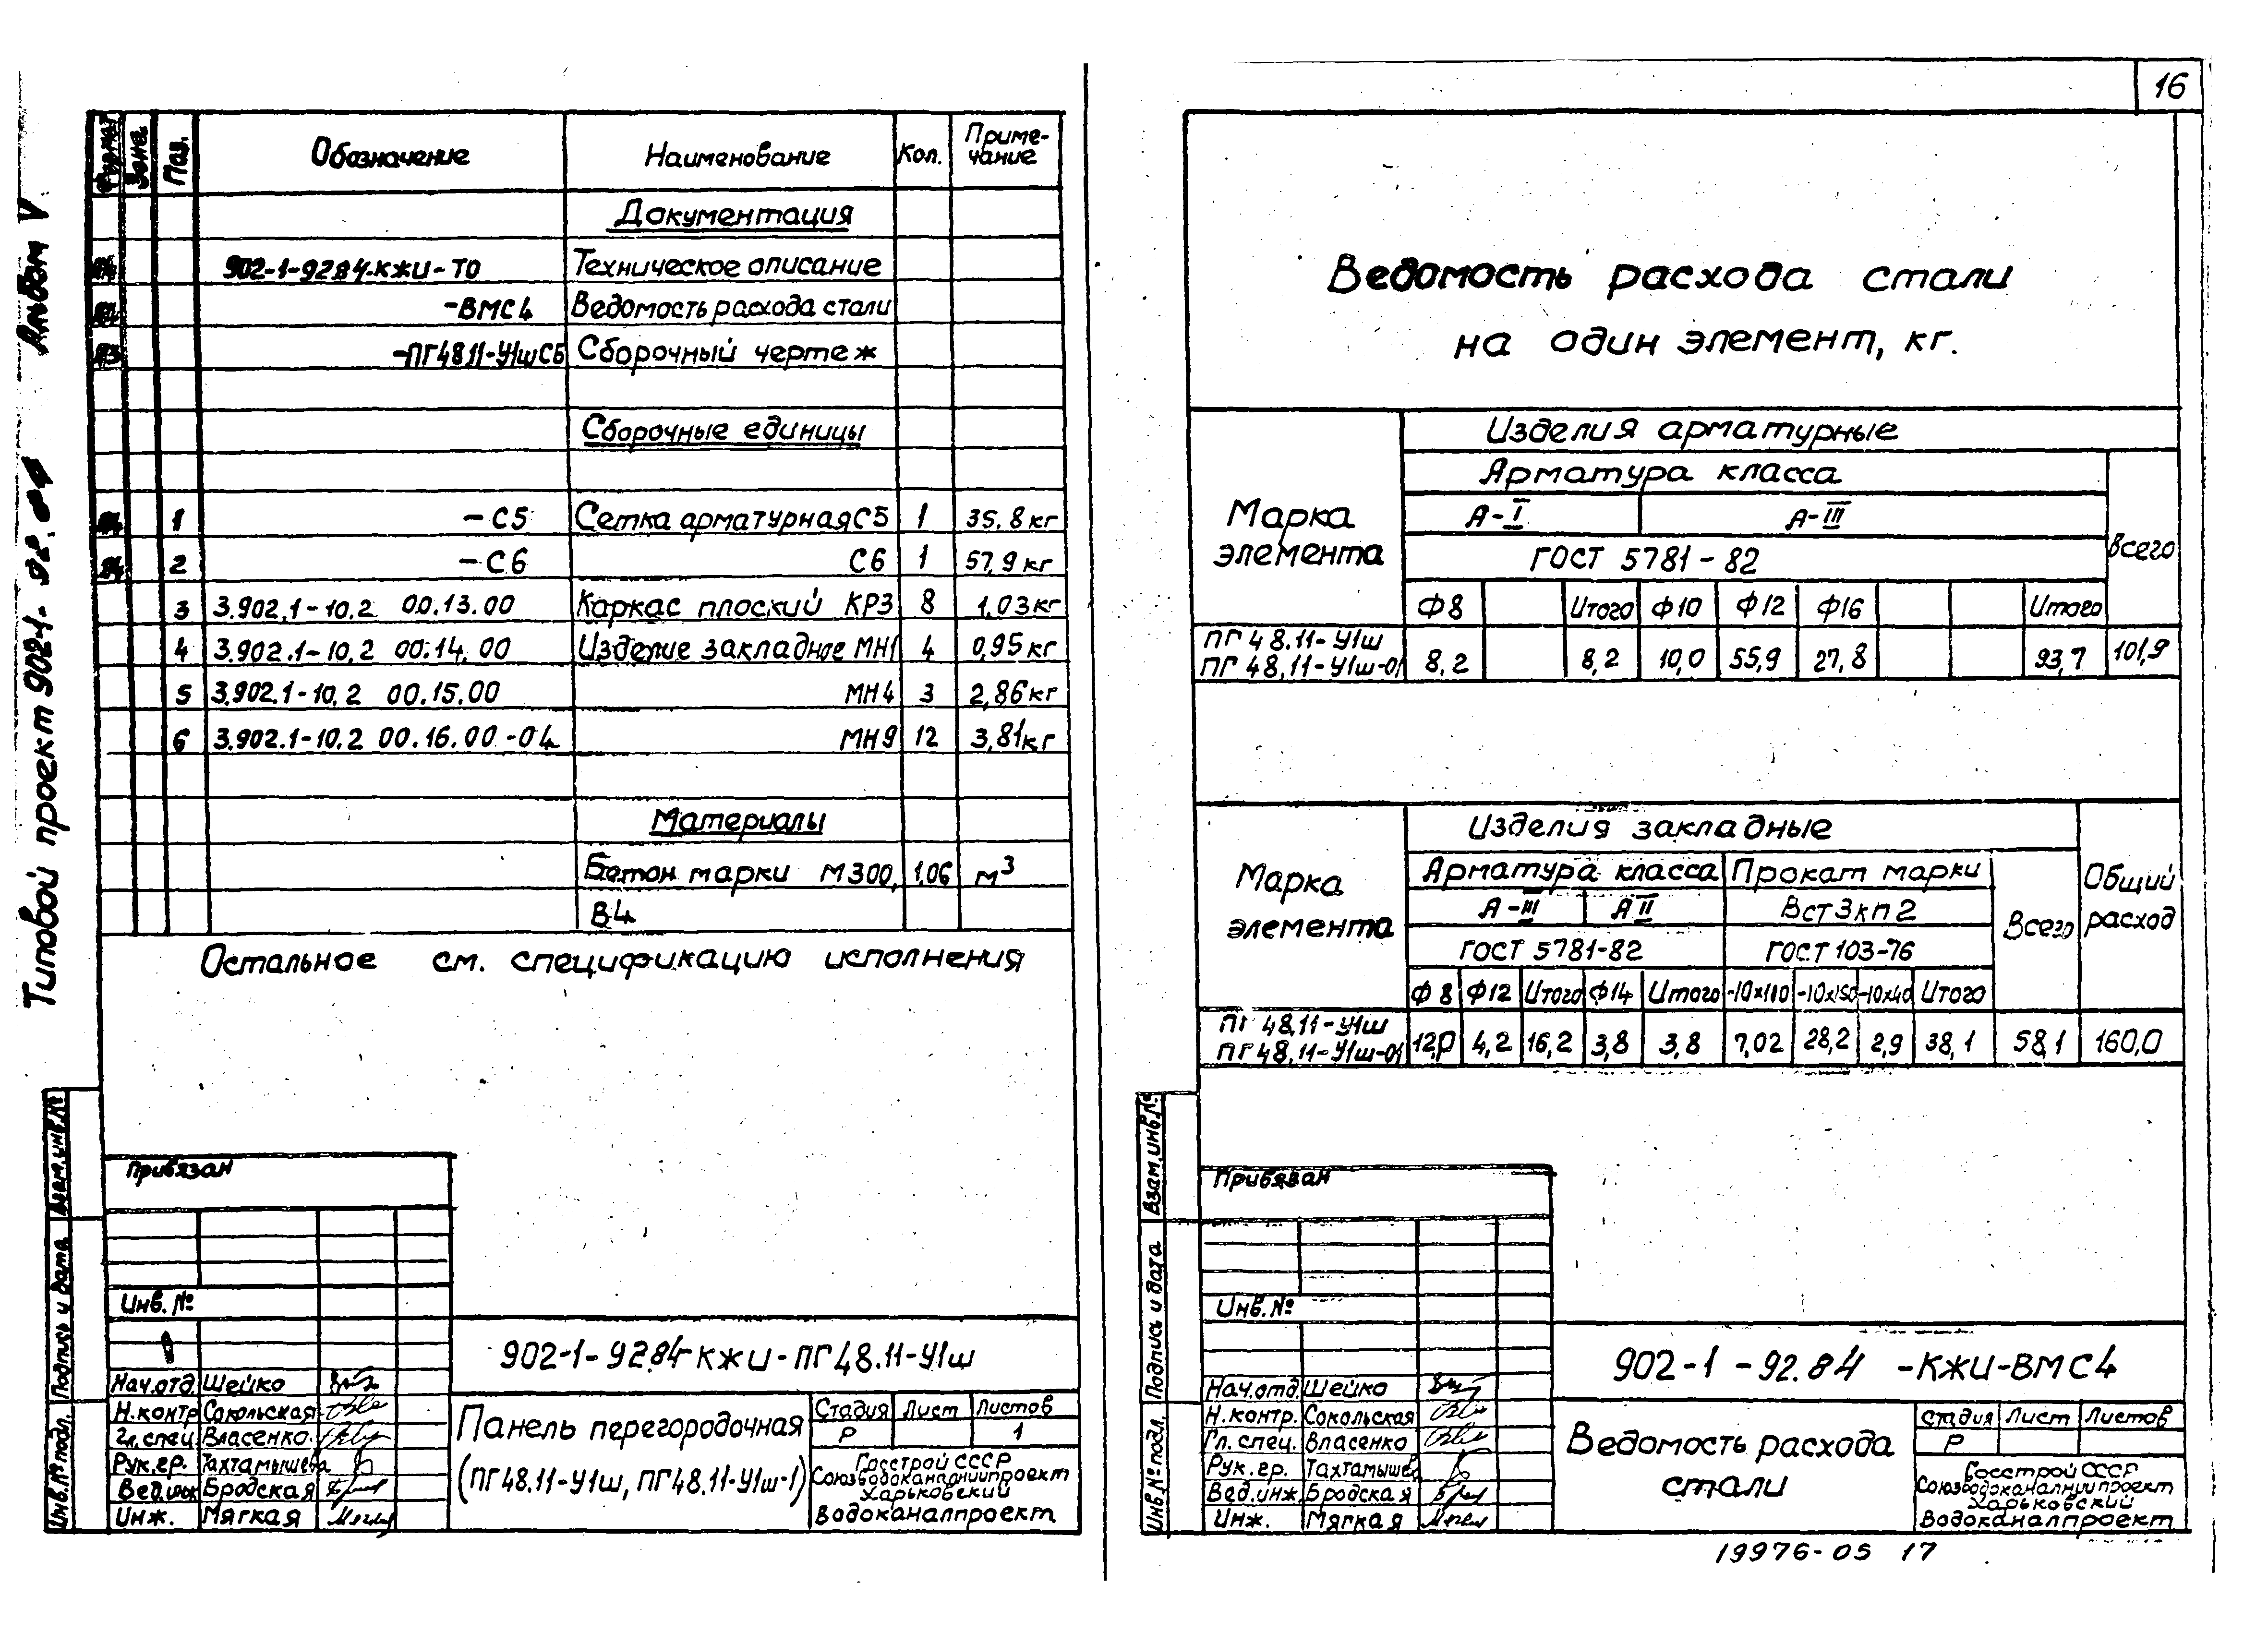 16
Типовой проект 902-1-92.84 Альбом V
Формат Зона Поз. Обозначение Наименование Кол. Приме-
чание
Документация
902-1-92.84-КЖИ-ТО Техническое описание
-ВМС4 Ведомость расхода стали
-ПГ48.11-У1шСБ Сборочный чертеж
Сборочные единицы
1 -С5 Сетка арматурная С5 1 35.8 кг
2 -С6 С6 1 57,9 кг
3 3.902.1-10.2 00.13.00 Каркас плоский КР3 8 1.03 кг
4 3.902.1-10.2 00.14.00 Изделие закладное МН1 4 0,95 кг
5 3.902.1-10.2 00.15.00 МН4 3 2,86 кг
6 3.902.1-10.2 00.16.00-04 МН9 12 3,81 кг
Материалы
Бетон марки М300, 1.06 м³
В4
Остальное см. спецификацию исполнения
Взам.инв.№
Подпись и дата
Инв.№ подл.
Привязан
Инв.№
Нач.отд. Шейко
Н.контр Сокольская
Гл.спец Власенко
Рук.гр. Тахтамышева
Вед.инж Бродская
Инж. Мягкая
902-1-92.84-КЖИ-ПГ48.11-У1ш
Панель перегородочная
(ПГ48.11-У1ш, ПГ48.11-У1ш-1)
Стадия Лист Листов
Р 1
Госстрой СССР
Союзводоканалниипроект
Харьковский
Водоканалпроект
Ведомость расхода стали
на один элемент, кг.
Марка
элемента
Изделия арматурные
Арматура класса
А-I А-III
ГОСТ 5781-82
Всего
Ф8 Итого Ф10 Ф12 Ф16 Итого
ПГ 48.11-У1ш
ПГ 48.11-У1ш-01 8,2 8,2 10,0 55,9 27,8 93,7 101,9
Марка
элемента
Изделия закладные
Арматура класса Прокат марки
А-III А II ВСт3кп2
ГОСТ 5781-82 ГОСТ 103-76
Всего
Общий
расход
Ф8 Ф12 Итого Ф14 Итого -10х100 -10х150 -10х40 Итого
ПГ 48.11-У1ш
ПГ 48.11-У1ш-01 12,0 4,2 16,2 3,8 3,8 7,02 28,2 2,9 38,1 58,1 160,0
Взам.инв.№
Подпись и дата
Инв.№ подл.
Привязан
Инв.№
Нач.отд. Шейко
Н.контр. Сокольская
Гл.спец. Власенко
Рук.гр. Тахтамышева
Вед.инж. Бродская
Инж. Мягкая
902-1-92.84 -КЖИ-ВМС4
Ведомость расхода
стали
Стадия Лист Листов
Р
Госстрой СССР
Союзводоканалниипроект
Харьковский
Водоканалпроект
19976-05 17